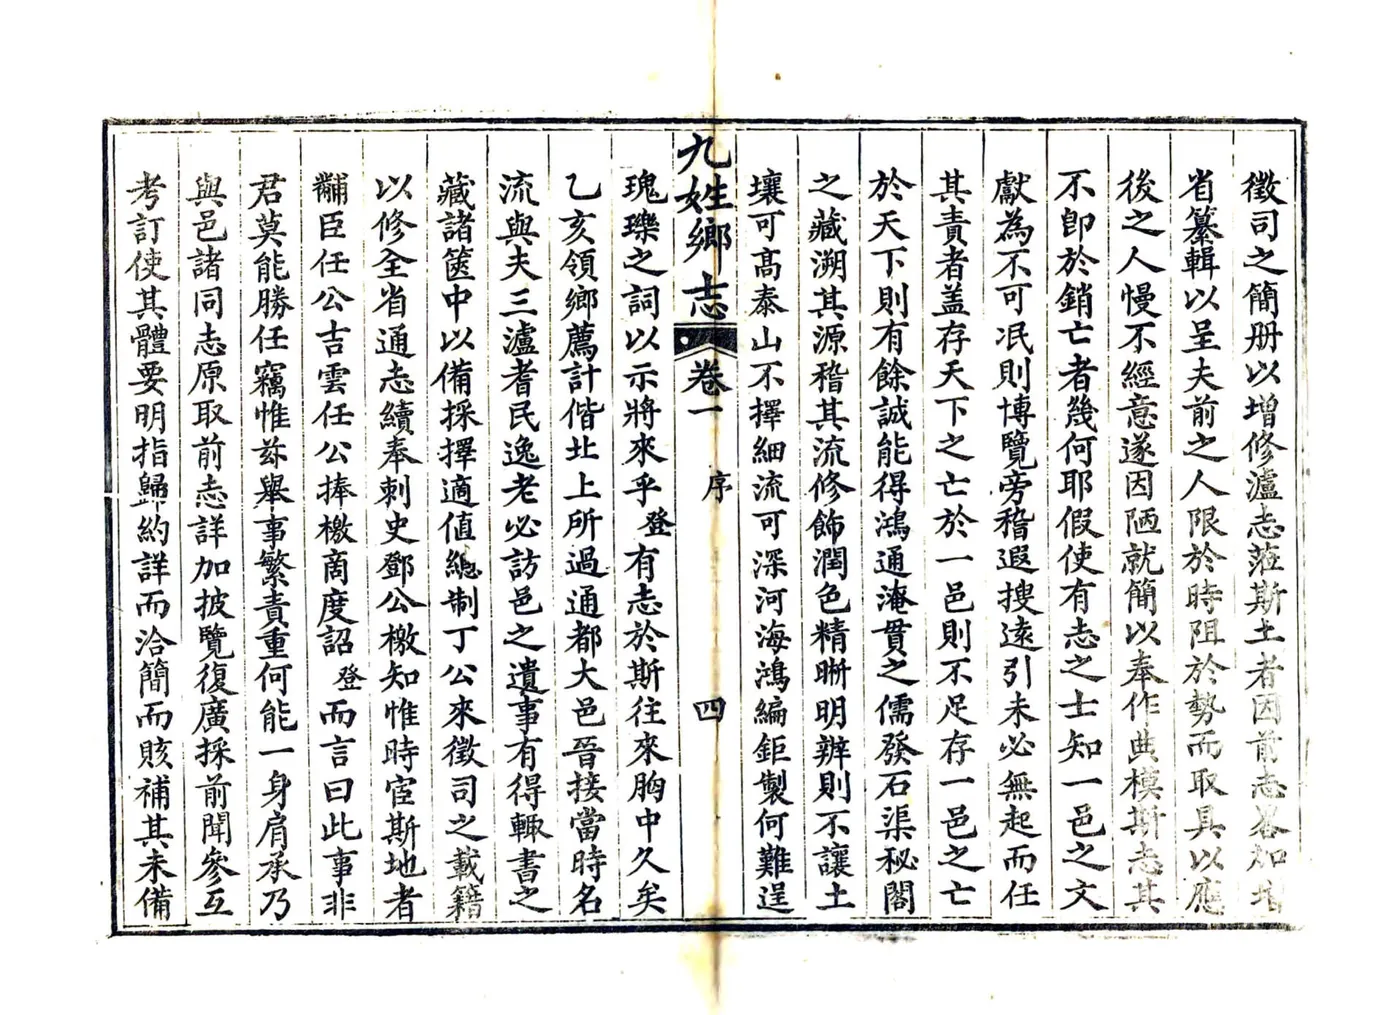 徵司之簡册以增修瀘志蒞斯土者因前志畧加增
省纂輯以呈夫前之人限於時阻於勢而取具以應
後之人慢不經意遂因陋就簡以奉作典模斯志其
不卽於銷亡者幾何耶假使有志之士知一邑之文
獻為不可冺則博覽旁稽遐搜遠引未必無起而任
其責者盖存天下之亡於一邑則不足存一邑之亡
於天下則有餘誠能得鴻通淹貫之儒發石渠秘閣
之藏溯其源稽其流修飾潤色精晰明辨則不讓土
壤可高泰山不擇細流可深河海鴻編鉅製何難逞
九姓鄉志 卷一 序 四
瑰瓅之詞以示將來乎登有志於斯往來胸中久矣
乙亥領鄉薦計偕北上所過通都大邑晉接當時名
流與夫三瀘耆民逸老必訪邑之遺事有得輒書之
藏諸篋中以備採擇適值總制丁公來徵司之載籍
以修全省通志續奉刺史鄧公檄知惟時宦斯地者
黼臣任公吉雲任公捧檄商度詔登而言曰此事非
君莫能勝任竊惟茲舉事繁責重何能一身肩承乃
與邑諸同志原取前志詳加披覽復廣採前聞參互
考訂使其體要明指歸約詳而洽簡而賅補其未備